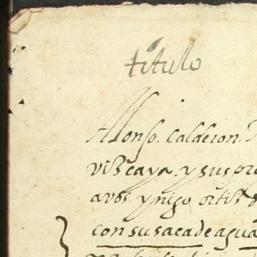 título
Alonso. Calderon.
vizcaya. y sus pro
avos ynigo ortiz
con susacadeagua